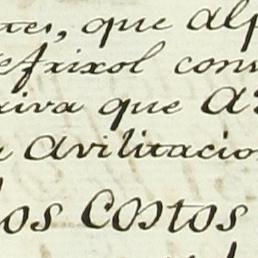 tes, que alp
efrixol conv
tiva que a
a avilitacio
los costos